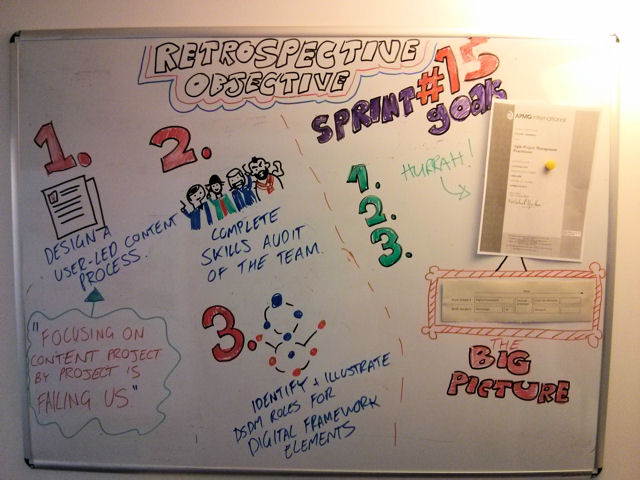 RETROSPECTIVE
OBJECTIVE
1.
DESIGN A
USER-LED CONTENT
PROCESS.
"FOCUSING ON
CONTENT PROJECT
BY PROJECT IS
FAILING US."
2.
COMPLETE
SKILLS AUDIT
OF THE TEAM.
3.
IDENTIFY + ILLUSTRATE
DSDM ROLES FOR
DIGITAL FRAMEWORK
ELEMENTS
SPRINT #15
goals
1.
2.
3.
HURRAH!
APMG International
Agile Project Management
Practitioner
THE
BIG
PICTURE